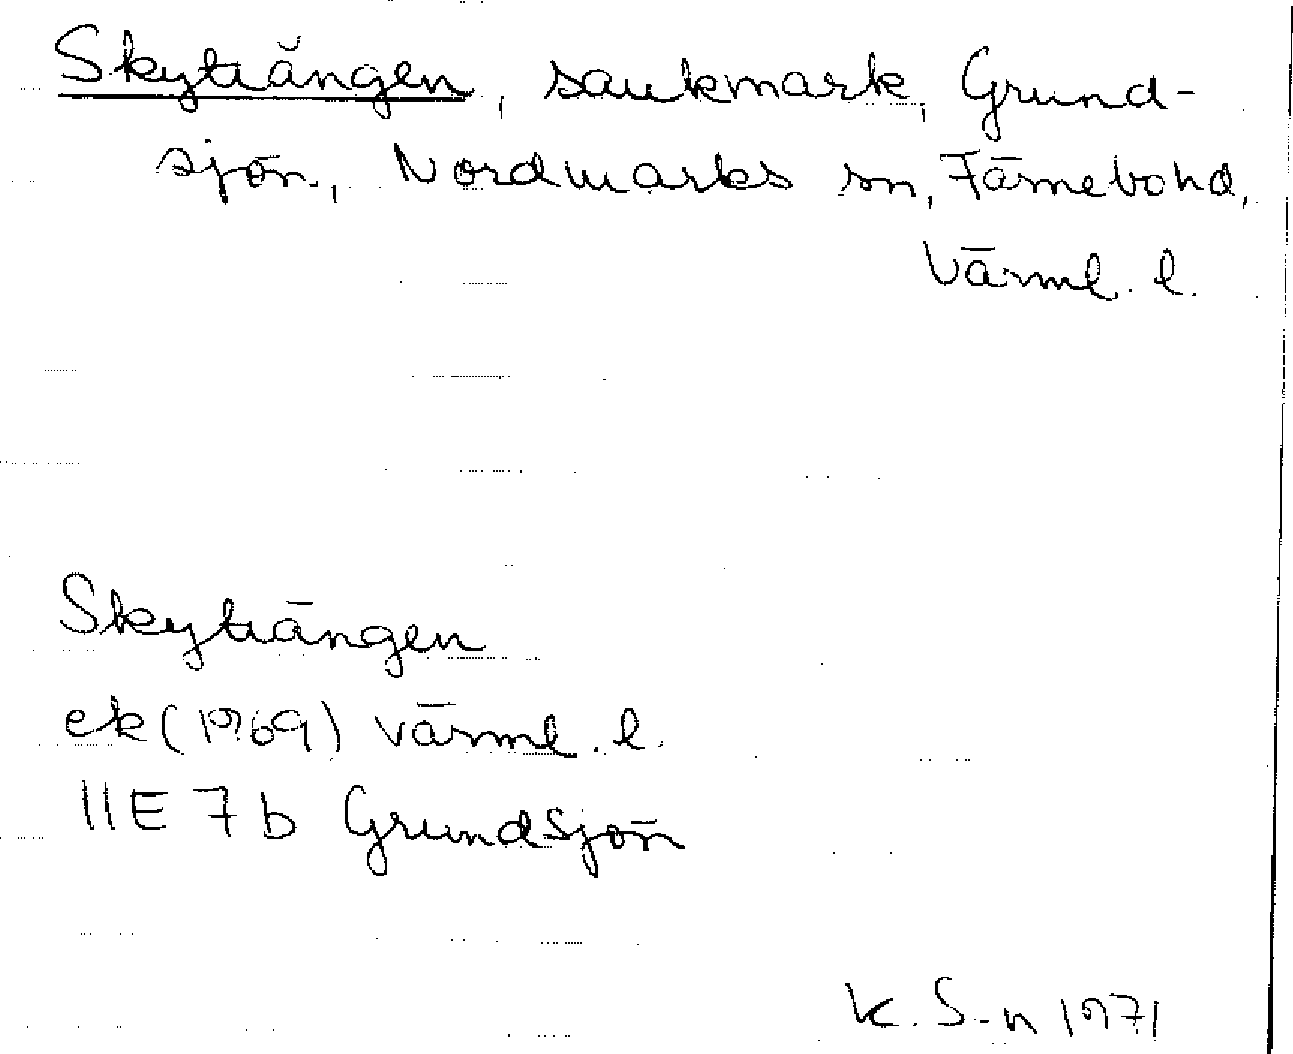 Skyttängen, sankmark, Grund-
sjön, Nordmarks sn, Färnebo hd,
Värml. l.
Skyttängen
ek (1969) Värml. l.
11E 7b Grundsjön
K. S-n 1971